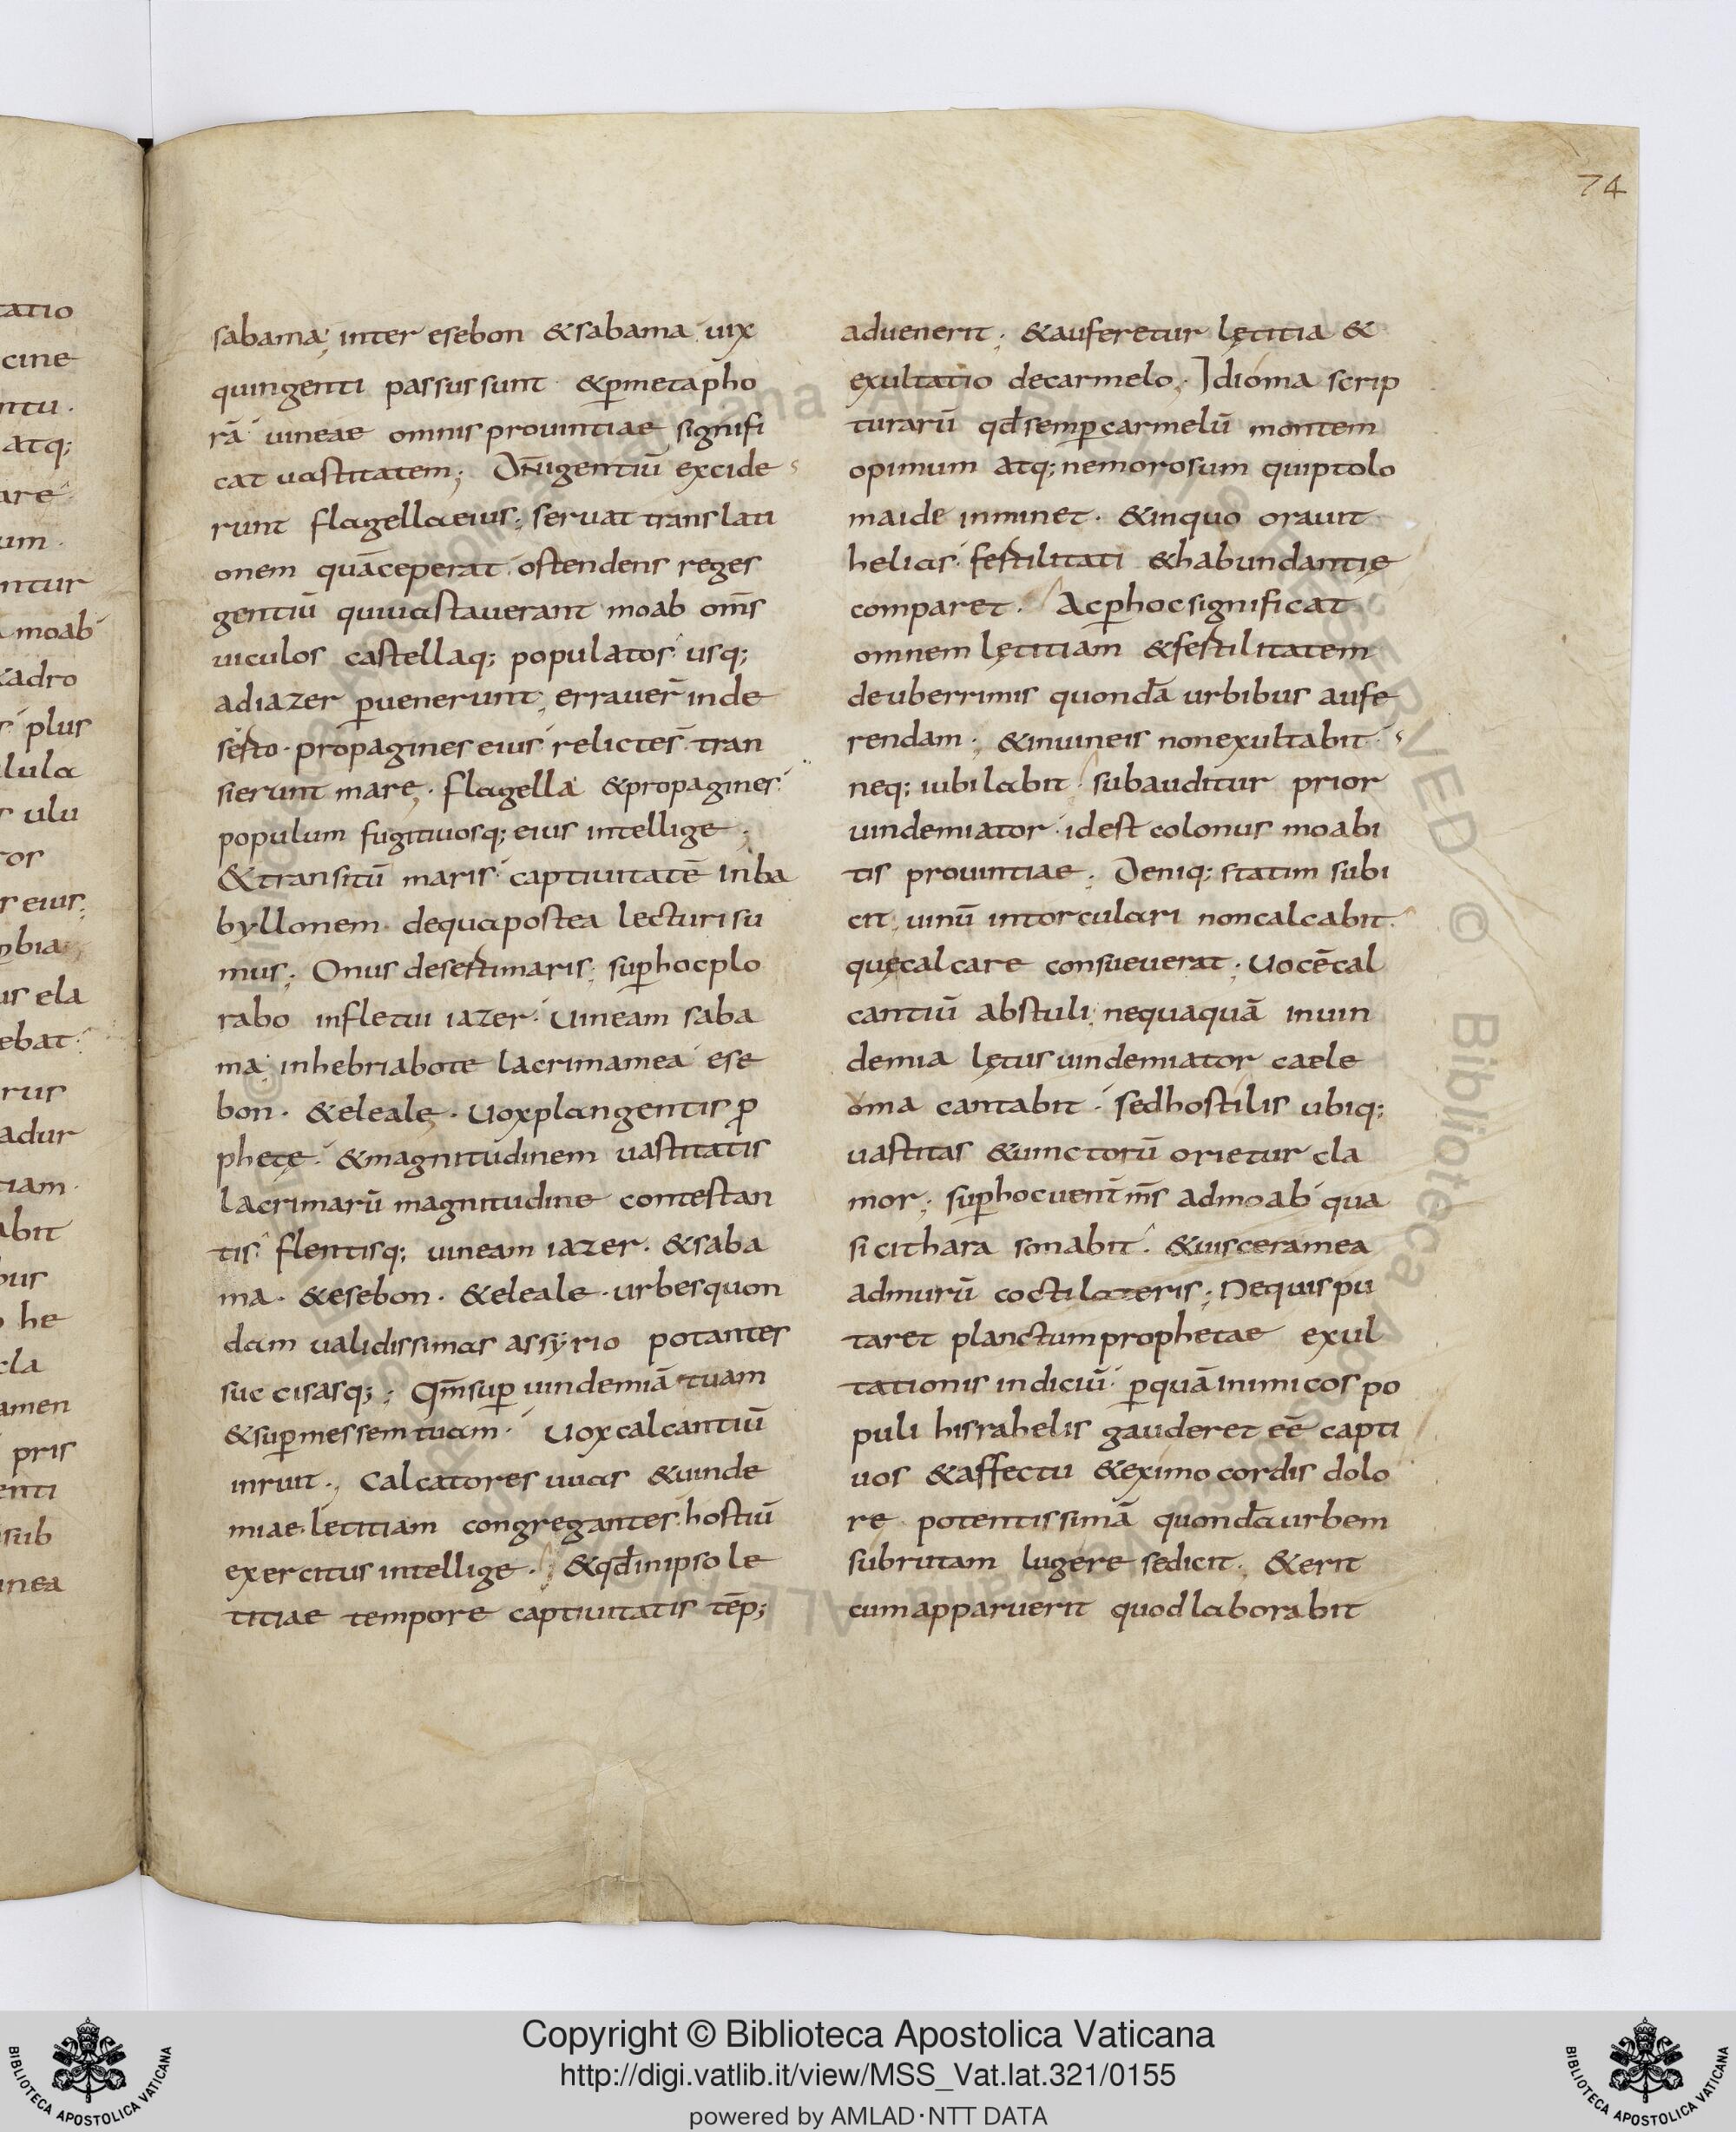 74
tatio
cine
ntu·
atq;
are
um·
ntur
moab
xadro
plus
lula
ulu
ros
r eius;
mbia
us ela
ebat
rus
adur
tiam·
abit
bus
he
cla
amen
pris
enti
sub
inea
sabama; inter esebon &sabama uix
quingenti passus sunt &p̄metapho
rā uineae omnis prouintiae signifi
cat uastitatem; Dn̄igentiū excide
runt flagellaeius; seruat translati
onem quāceperat ostendens reges
gentiū quiuastauerant moab om̄s
uiculos castellaq; populatos usq;
adiazer p̄uenerunt; errauer̄ inde
serto· propagines eius relictes tran
sierunt mare· flagella &propagines
populum fugitiuosq; eius intellige;
&transitū maris captiuitatē inba
byllonem dequapostea lecturi su
mus; Onus desertimaris; sup̄hocplo
rabo infletu iazer· Uineam saba
ma; inhebriabote lacrimamea ese
bon· &eleale· Uoxplangentis ꝓ
phetę· &magnitudinem uastitatis
lacrimarū magnitudine contestan
tis flentisq; uineam iazer· &saba
ma· &esebon· &eleale· urbesquon
dam ualidissimas assyrio potantes
succisasq;; Qm̄sup̄ uindemiā tuam
&sup̄messem tuam· Uoxcalcantiū
inruit; Calcatores uuas &uinde
miae letitiam congregantes hostiū
exercitus intellige·; &qd̄inipso le
titiae tempore captiuitatis tēp;
aduenerit; &auferetur lętitia &
exultatio decarmelo; Idioma scrip
turarū qd̄semp̄carmelū montem
opimum atq; nemorosum quiptolo
maide inminet· &inquo orauit
helias fertilitati &habundantię
comparet· Acp̄hocsignificat
omnem lętitiam &fertilitatem
deuberrimis quondā urbibus aufe
rendam·; &inuineis nonexultabit
neq; iubilabit subauditur prior
uindemiator idest colonus moabi
tis prouintiae; Deniq; statim subi
cit; uinū intorculari noncalcabit
quęcalcare consueuerat; Uocēcal
cantiū abstuli; nequaquā inuin
demia lętus uindemiator caele
oma cantabit· sedhostilis ubiq;
uastitas &uinctorū orietur cla
mor; sup̄hocuent̄ m̄s admoab qua
si cithara sonabit· &uisceramea
admurū coctilateris; Nequis pu
taret planctum prophetae exul
tationis indiciū p̄quā inimicos po
puli hisrahelis gauderet eē capti
uos &affectu &eximo cordis dolo
re potentissimā quondā urbem
subrutam lugere sedicit; &erit
cumapparuerit quodlaborabit
Copyright © Biblioteca Apostolica Vaticana
http://digi.vatlib.it/view/MSS_Vat.lat.321/0155
powered by AMLAD·NTT DATA
BIBLIOTECA APOSTOLICA VATICANA
BIBLIOTECA APOSTOLICA VATICANA